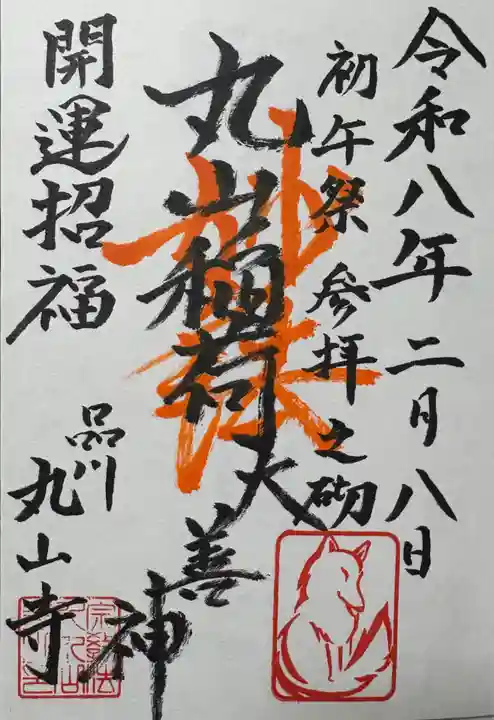 令和八年二月八日
初午祭参拝之砌
丸山稲荷大善神
開運招福
品川
丸山寺